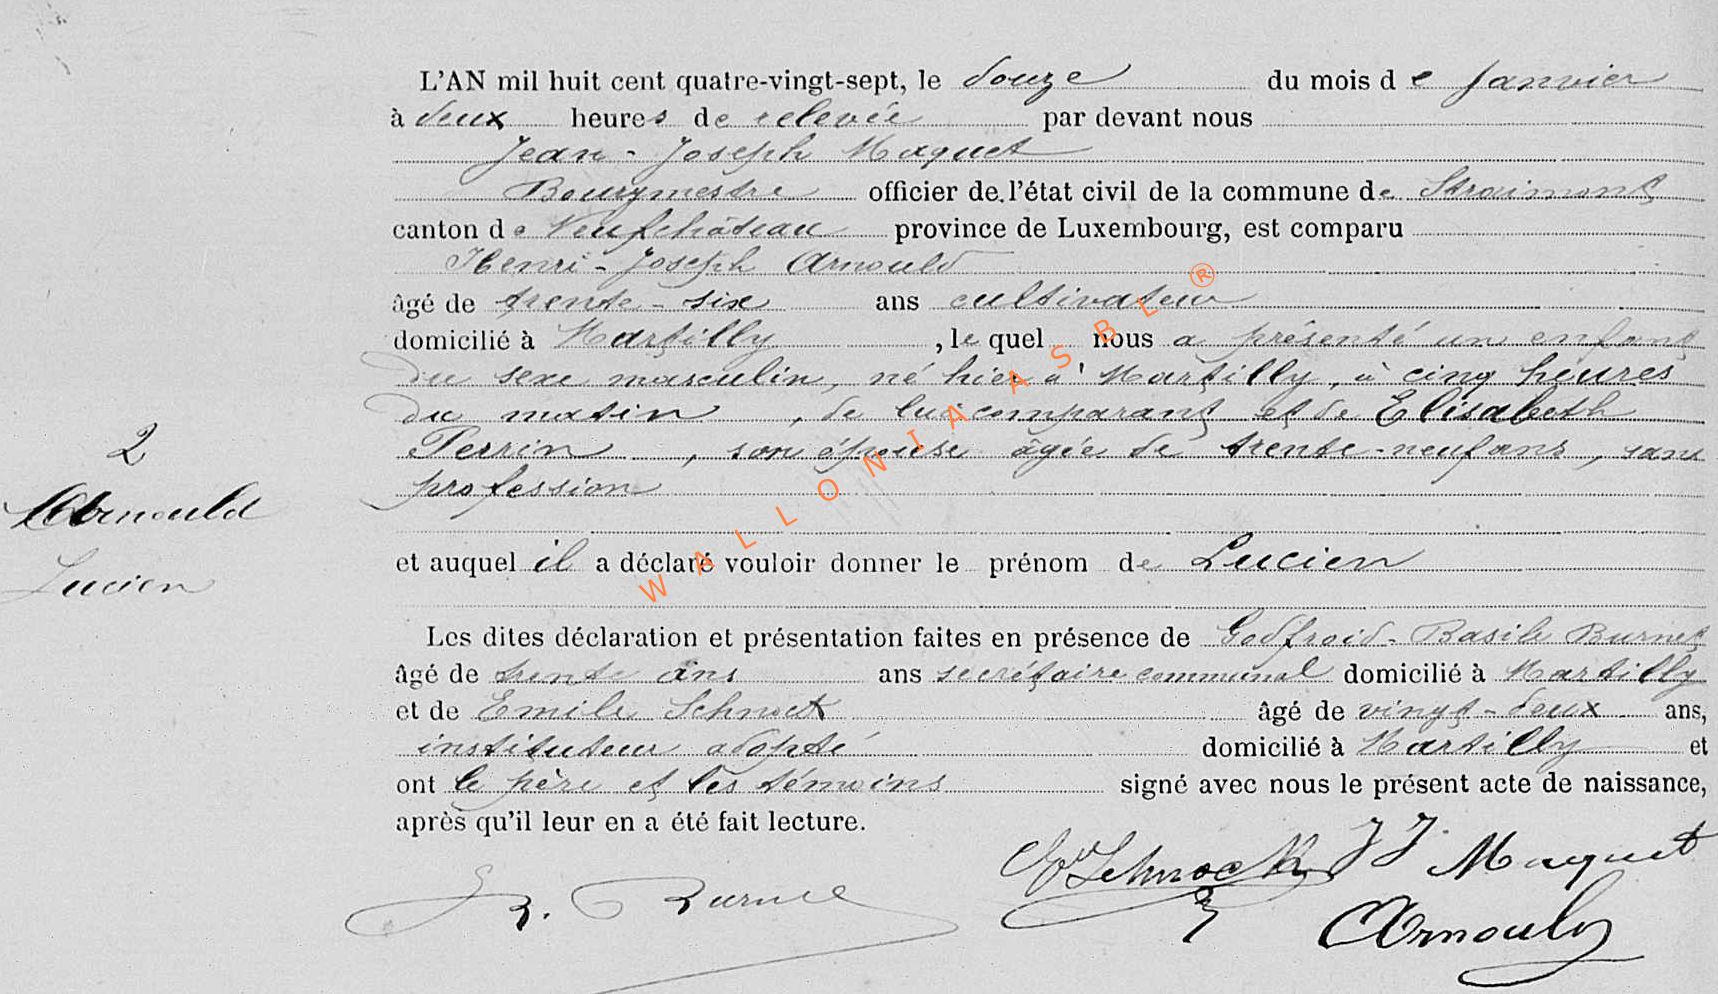 L'AN mil huit cent quatre-vingt-sept, le douze du mois de Janvier
à deux heures de relevée par devant nous
Jean-Joseph Maquet
Bourgmestre officier de l'état civil de la commune de Straimont
canton de Neufchâteau province de Luxembourg, est comparu
Henri-Joseph Arnould
âgé de trente-six ans cultivateur
domicilié à Martilly, le quel nous a présenté un enfant
du sexe masculin, né hier à Martilly, à cinq heures
du matin, de lui comparant et de Elisabeth
Perrin, son épouse âgée de trente-neuf ans, sans
profession
2
Arnould
Lucien
et auquel il a déclaré vouloir donner le prénom de Lucien
Les dites déclaration et présentation faites en présence de Godfroid-Basile Burnet
âgé de trente ans ans secrétaire communal domicilié à Martilly
et de Emile Schnock âgé de vingt-deux ans,
instituteur adopté domicilié à Martilly et
ont le père et les témoins signé avec nous le présent acte de naissance,
après qu'il leur en a été fait lecture.
Schnock JJ Maquet
B. Burnet
Arnould
WALLONIA ASBL ®